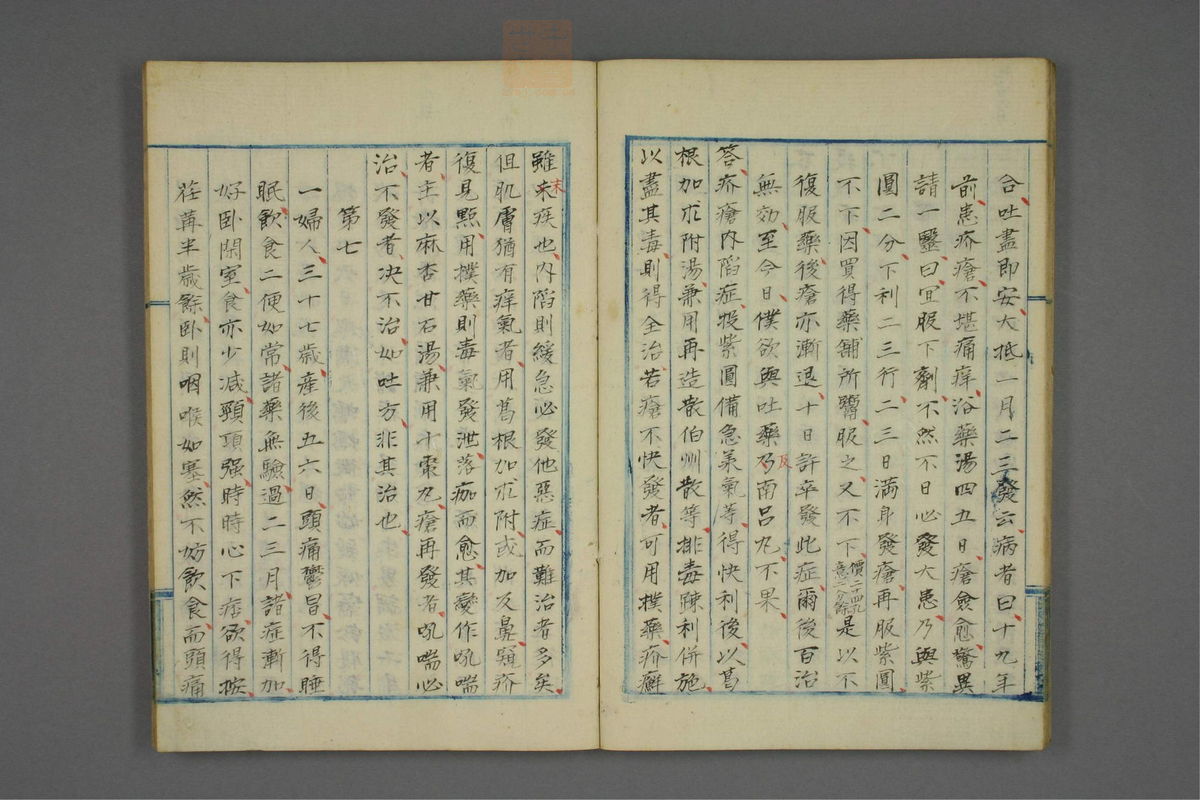 合吐盡即安大抵一月二三發云病者曰十九年
前患疥瘡不堪痛痒浴藥湯四五日瘡愈愈驚異
請一醫曰宜服下劑不然不日必發大患乃與紫
圓二分下利二三行二三日滿身發瘡再服紫圓
不下因買得藥舖所鬻服之又不下是以不
復服藥後瘡亦漸退十日許卒發此症爾後百治
無効至今日僕欲與吐藥乃反南呂丸不果
答疥瘡内陷症投紫圓備急美氣等得快利後以葛
根加朮附湯兼用再造散伯州散等排毒疎利併施
以盡其毒則得全治若瘡不快發者可用撲藥疥癬
雖末疾也内陷則緩急必發他惡症而難治者多矣
但肌膚猶有痒氣者用葛根加朮附或加反鼻窺疥
復見點用撲藥則毒氣發泄落痂而愈其變作吼喘
者主以麻杏甘石湯兼用十棗丸瘡再發者吼喘必
治不發者决不治如吐方非其治也
第七
一婦人三十七歳産後五六日頭痛鬱冒不得睡
眠飲食二便如常諸藥無驗過二三月諸症漸加
好卧閑室食亦少减頸項强時時心下痞欲得按
荏苒半歳餘卧則咽喉如塞然不妨飲食而頭痛